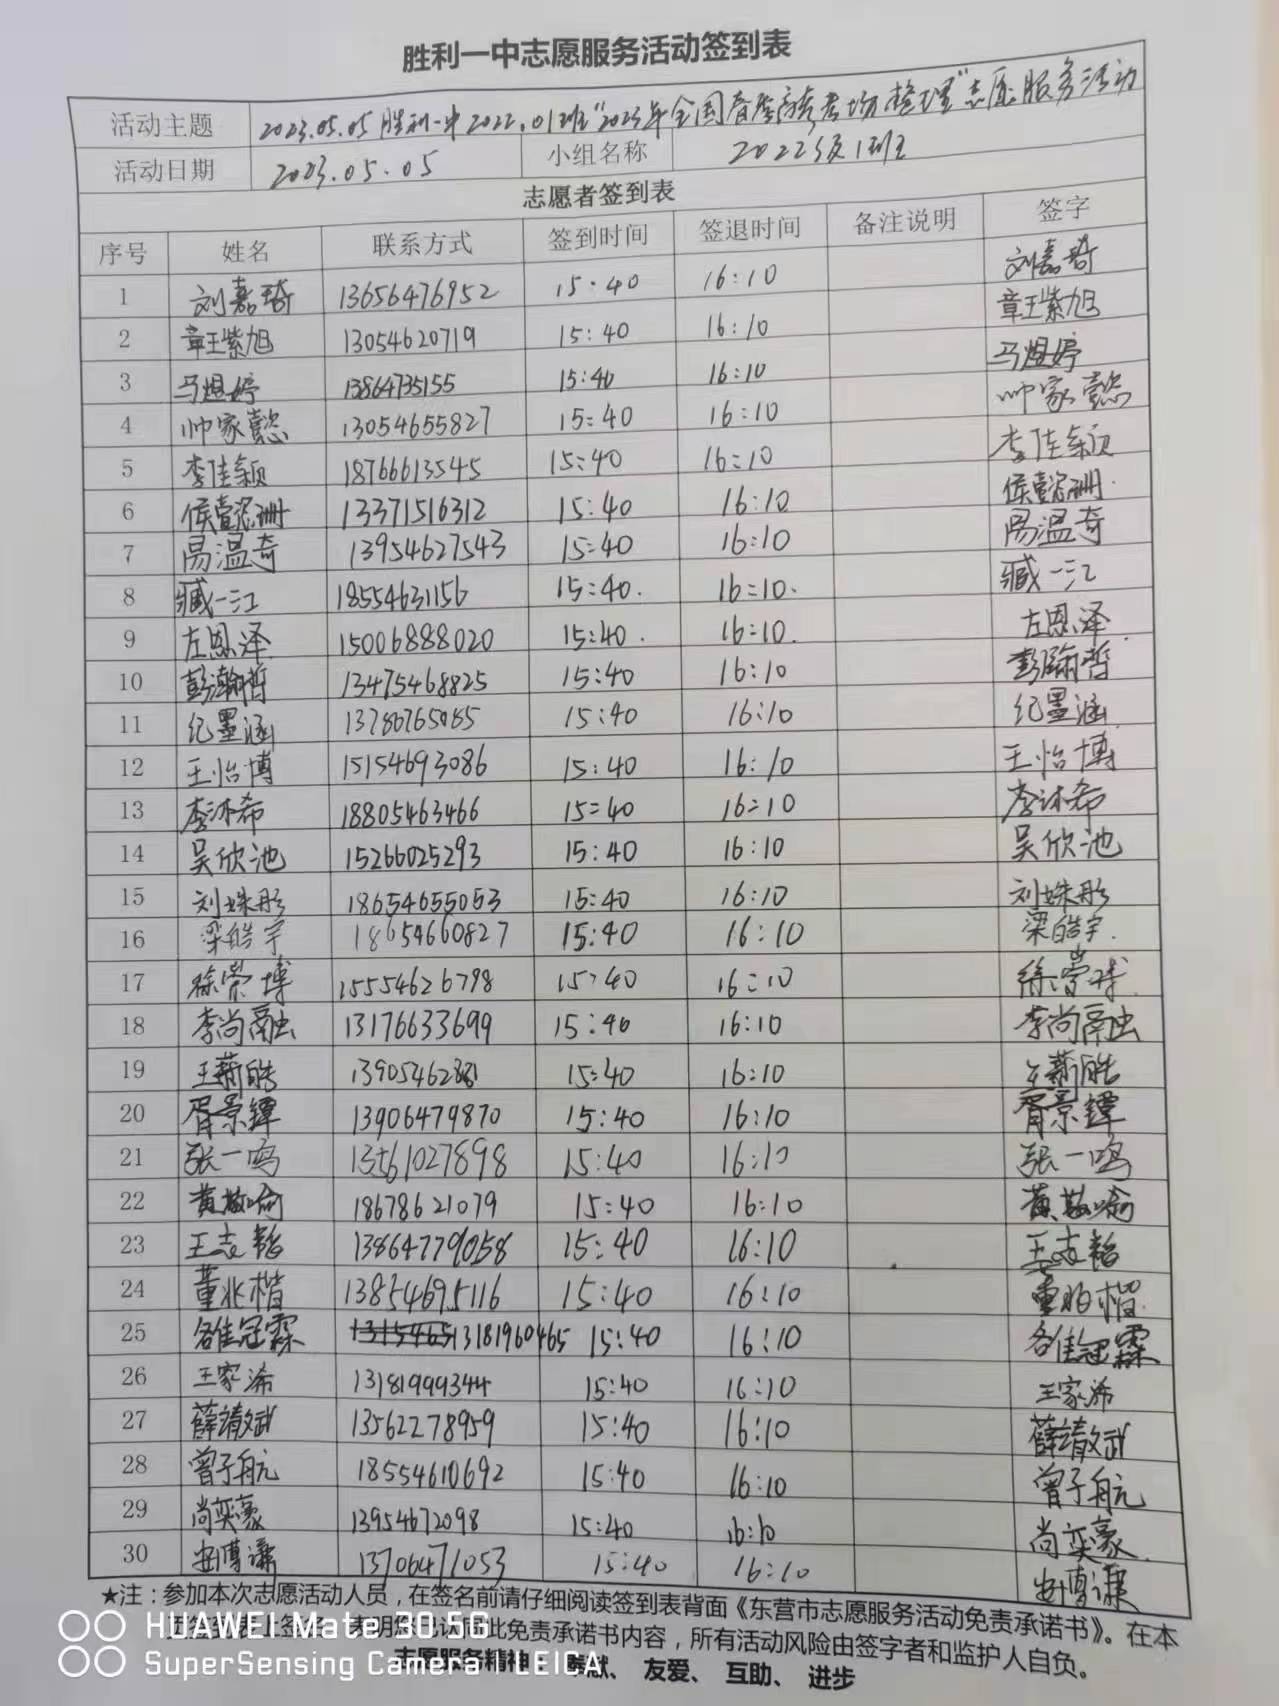 胜利一中志愿服务活动签到表
活动主题 2023.05.05 胜利一中2022.01班"2023年全国春季高考考场整理"志愿服务活动
活动日期 2023.05.05 小组名称 2022级1班
志愿者签到表
序号 姓名 联系方式 签到时间 签退时间 备注说明 签字
1 刘嘉琦 13656476952 15:40 16:10 刘嘉琦
2 章王紫旭 13054620719 15:40 16:10 章王紫旭
3 马煜婷 13864735155 15:40 16:10 马煜婷
4 帅家懿 13054655827 15:40 16:10 帅家懿
5 李佳颖 18766613545 15:40 16:10 李佳颖
6 侯懿洲 13371516312 15:40 16:10 侯懿洲
7 易温奇 13954627543 15:40 16:10 易温奇
8 臧一江 18554631156 15:40. 16:10. 臧一江
9 左恩泽 15006888020 15:40. 16:10. 左恩泽
10 彭瀚哲 13475468825 15:40 16:10 彭瀚哲
11 纪墨涵 13780765085 15:40 16:10 纪墨涵
12 王怡博 15154693086 15:40 16:10 王怡博
13 李沐希 18805463466 15:40 16:10 李沐希
14 吴欣池 15266025293 15:40 16:10 吴欣池
15 刘姝彤 18654655053 15:40 16:10 刘姝彤
16 梁皓宇 18654660827 15:40 16:10 梁皓宇.
17 徐崇博 15554626798 15:40 16:10 徐崇博
18 李尚融 13176633699 15:40 16:10 李尚融
19 王薪皓 15:40 16:10 王薪皓
20 胥景镡 13906479870 15:40 16:10 胥景镡
21 张一鸣 13561027898 15:40 16:10 张一鸣
22 黄敬喻 18678621079 15:40 16:10 黄敬喻
23 王志韬 13864779058 15:40 16:10 王志韬
24 董兆楷 13854695116 15:40 16:10 董兆楷
25 13181960465 15:40 16:10
26 王家浠 13181999344 15:40 16:10 王家浠
27 薛靖斌 13562278959 15:40 16:10 薛靖斌
28 曾子航 18554610692 15:40 16:10 曾子航
29 尚奕豪 13954672098 15:40 16:10 尚奕豪.
30 博谦 13706471053 15:40 16:10 博谦
★注：参加本次志愿活动人员，在签名前请仔细阅读签到表背面《东营市志愿服务活动免责承诺书》。在本
认同此免责承诺书内容，所有活动风险由签字者和监护人自负。
志愿服务精神：奉献、友爱、互助、进步
HUAWEI Mate 30 5G
SuperSensing Camera | LEICA